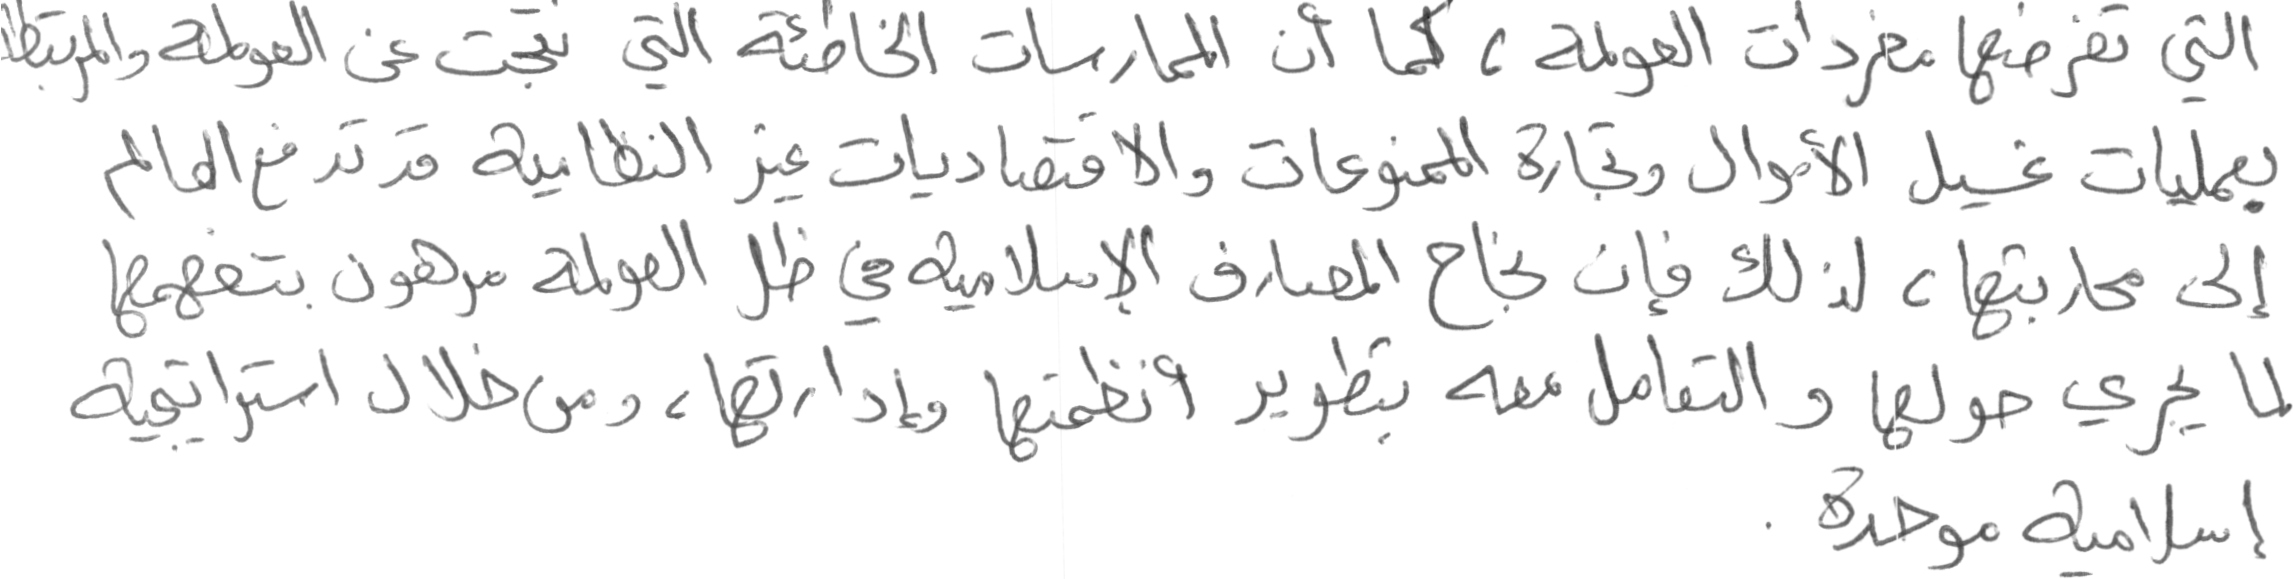 التي تفرضها مفردات العولمة ، كما أن الممارسات الخاطئة التي نتجت عن العولمة والمرتبطة
بعمليات غسيل الأموال وتجارة الممنوعات والاقتصاديات غير النظامية قد تدفع العالم
إلى محاربتها ، لذلك فإن نجاح المصارف الإسلامية في ظل العولمة مرهون بتفهمها
لما يجري حولها و التعامل معه بتطوير أنظمتها وإدارتها ، ومن خلال استراتيجية
إسلامية موحدة .